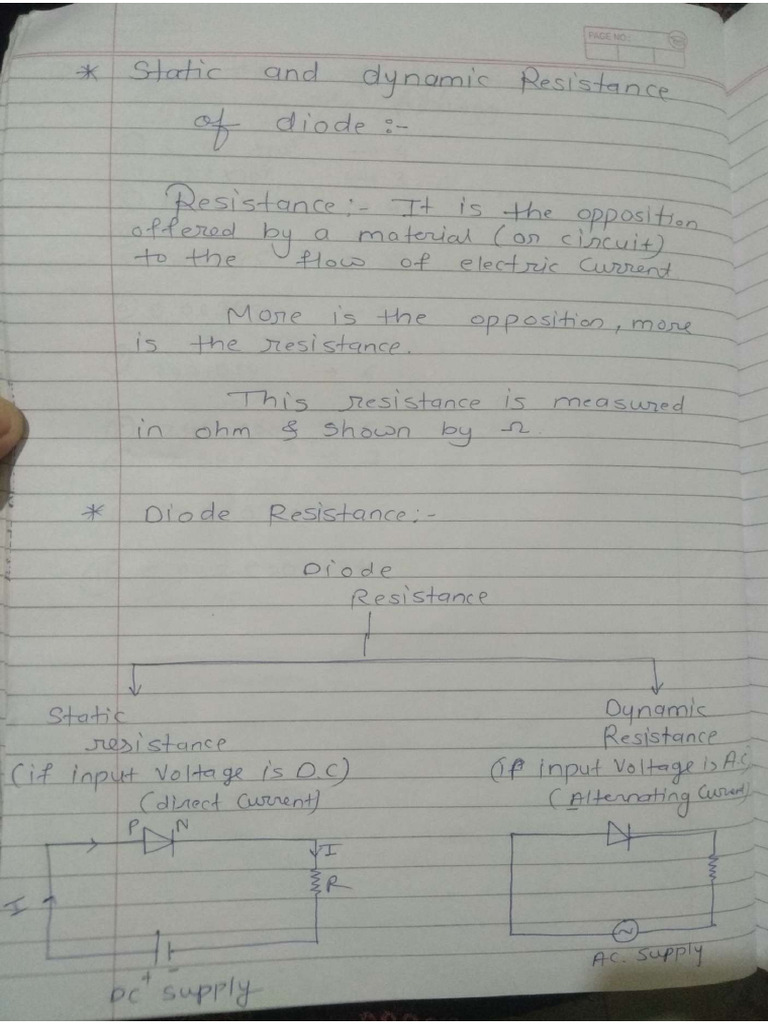 PAGE NO.:
* Static and dynamic Resistance
of diode :-
Resistance :- It is the opposition
offered by a material (or circuit)
to the flow of electric current
More is the opposition, more
is the resistance.
This resistance is measured
in ohm & shown by Ω.
* Diode Resistance :-
Diode
Resistance
Static
resistance
(if input voltage is D.C)
(direct current)
Dynamic
Resistance
(if input voltage is A.C
(Alternating Current)
P N
I
R
I
+ -
DC supply
~
A.C. Supply